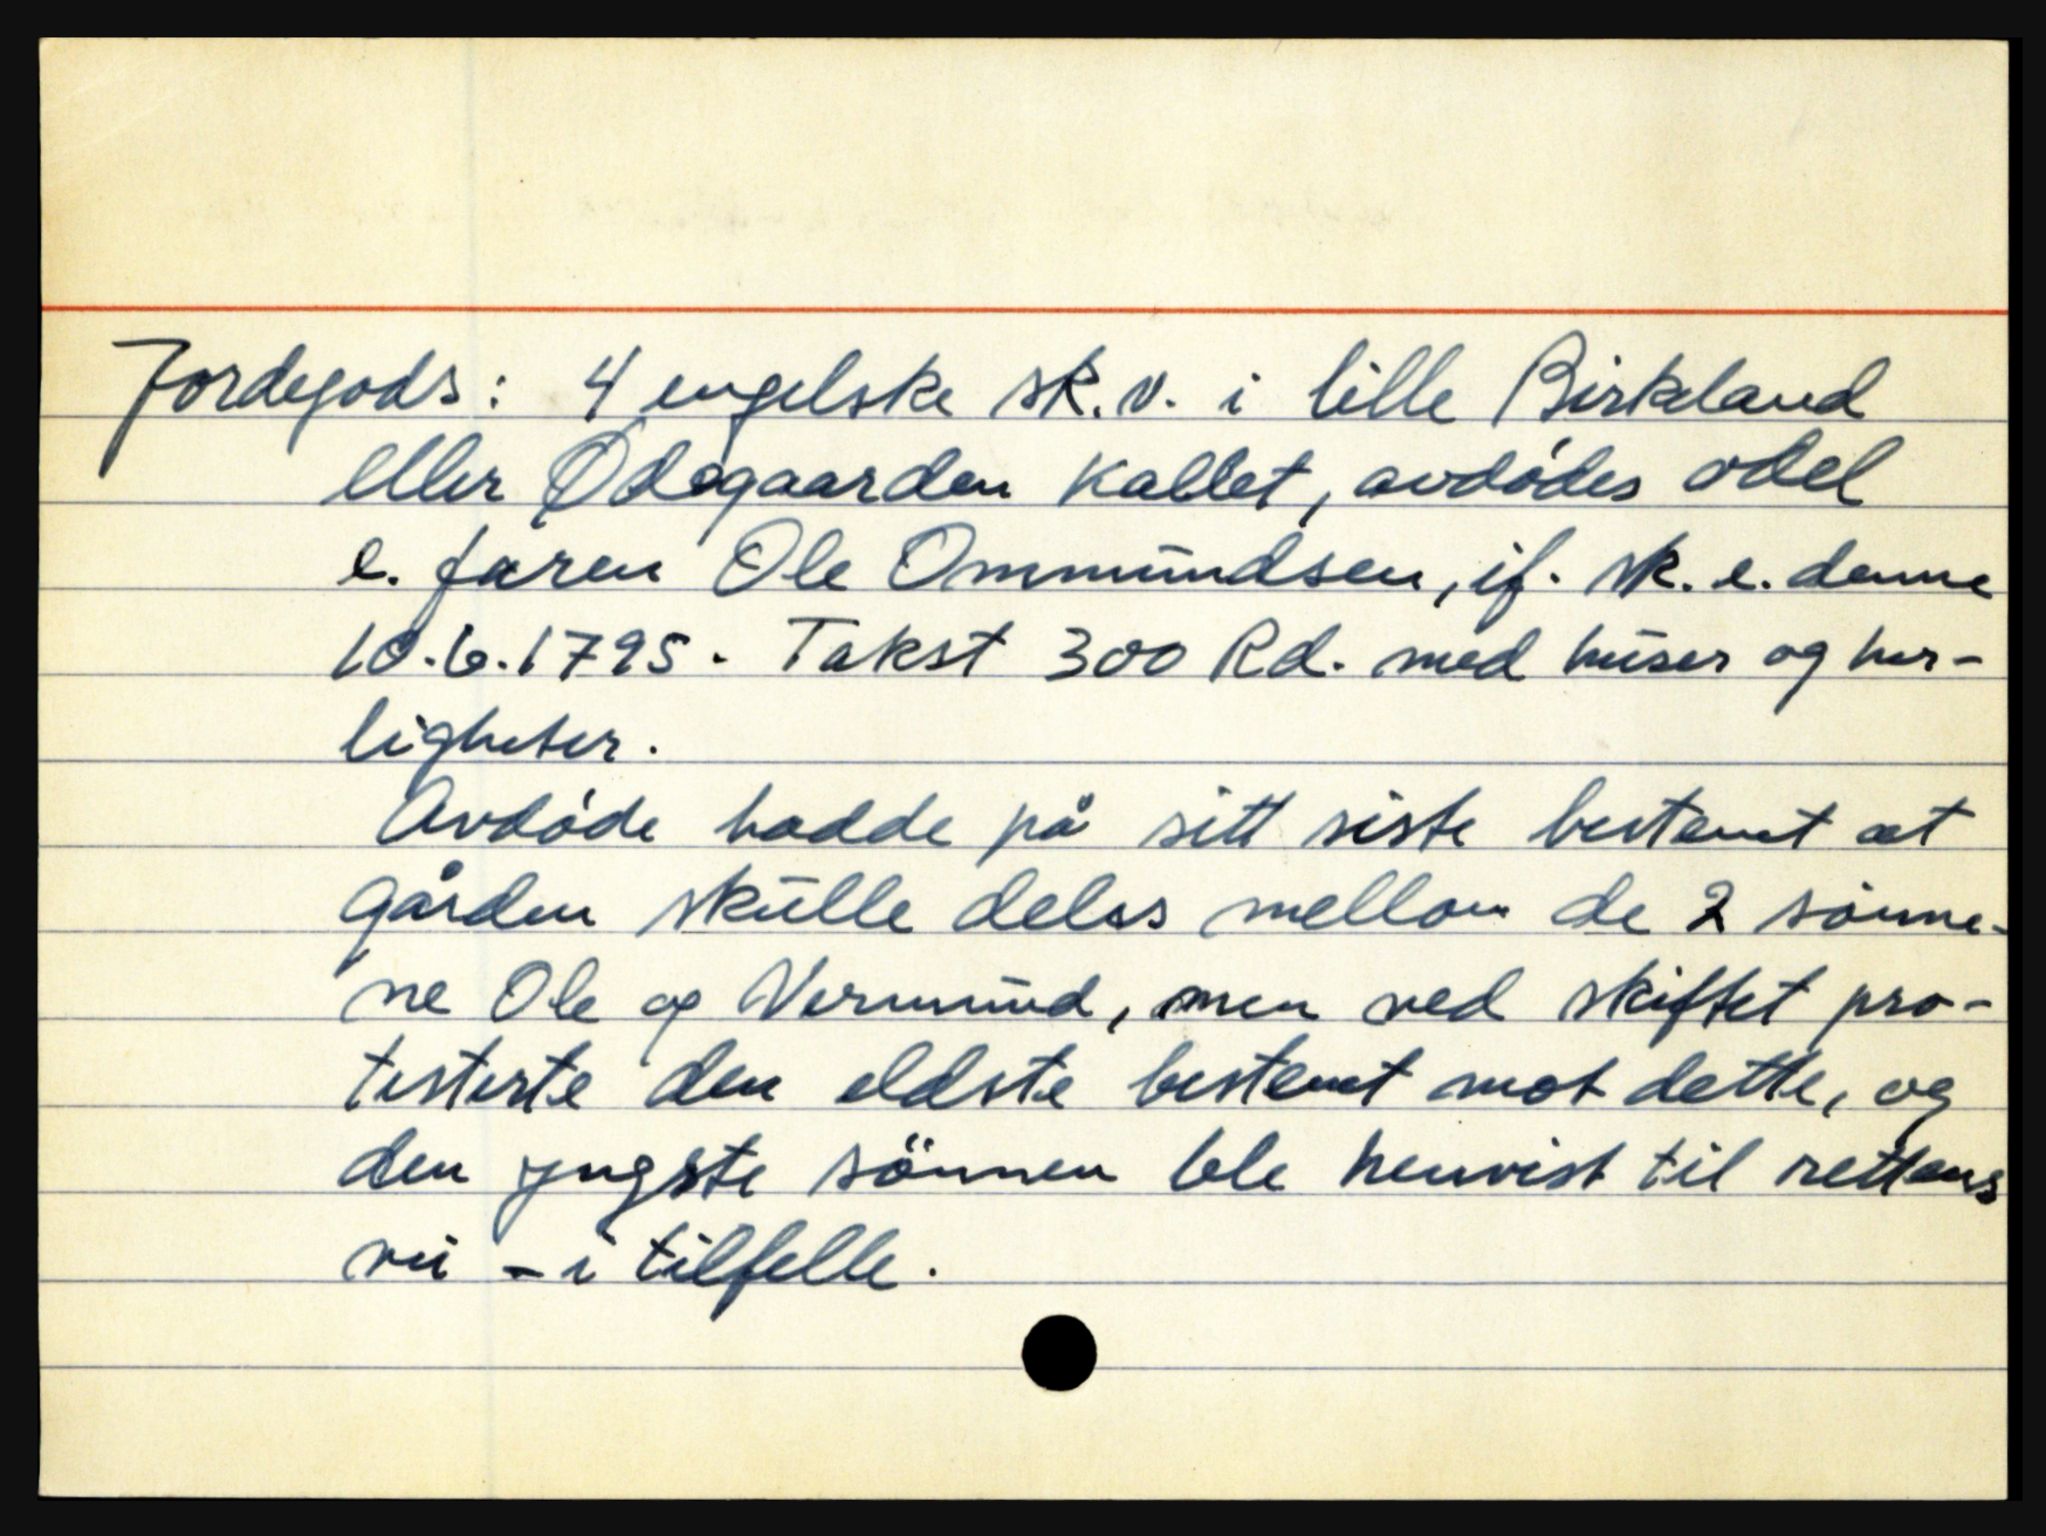 Jordegods: 4 engelske sk.v. i lille Birkeland
eller Ødegaarden kallet, avdødes odel
e. faren Ole Ommundsen, if. sk. e. denne
10.6.1795. Takst 300 Rd. med huser og her-
ligheter.
Avdøde hadde på sitt siste bestemt at
gården skulle deles mellom de 2 sønne-
ne Ole og Vermund, men ved skiftet pro-
testerte den eldste bestemt mot dette, og
den yngste sønnen ble henvist til rettens
vei - i tilfelle.